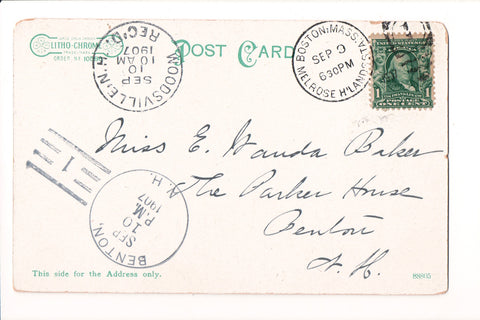 LITHO-CHROME
POST CARD
WOODSVILLE, N.H.
SEP
10
10 AM
1907
REC'D.
BOSTON, MASS.
SEP 9
630PM
MELROSE H'LANDS STA.
1
1
BENTON,
SEP
10
P.M.
1907
N. H.
Miss E. Wanda Baker
The Parker House
Benton
N. H.
This side for the Address only.